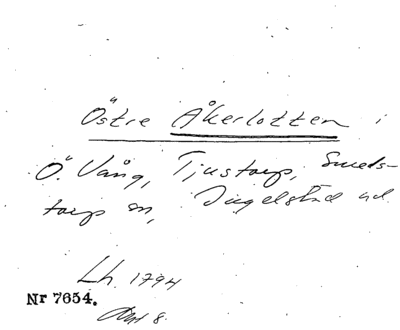 Östre Åkerlotten i
Ö. Vång, Tjustorp, Smeds-
torp sn, Ingelstad hd.
Lh. 1794
Nr 7654.
Akt 8.